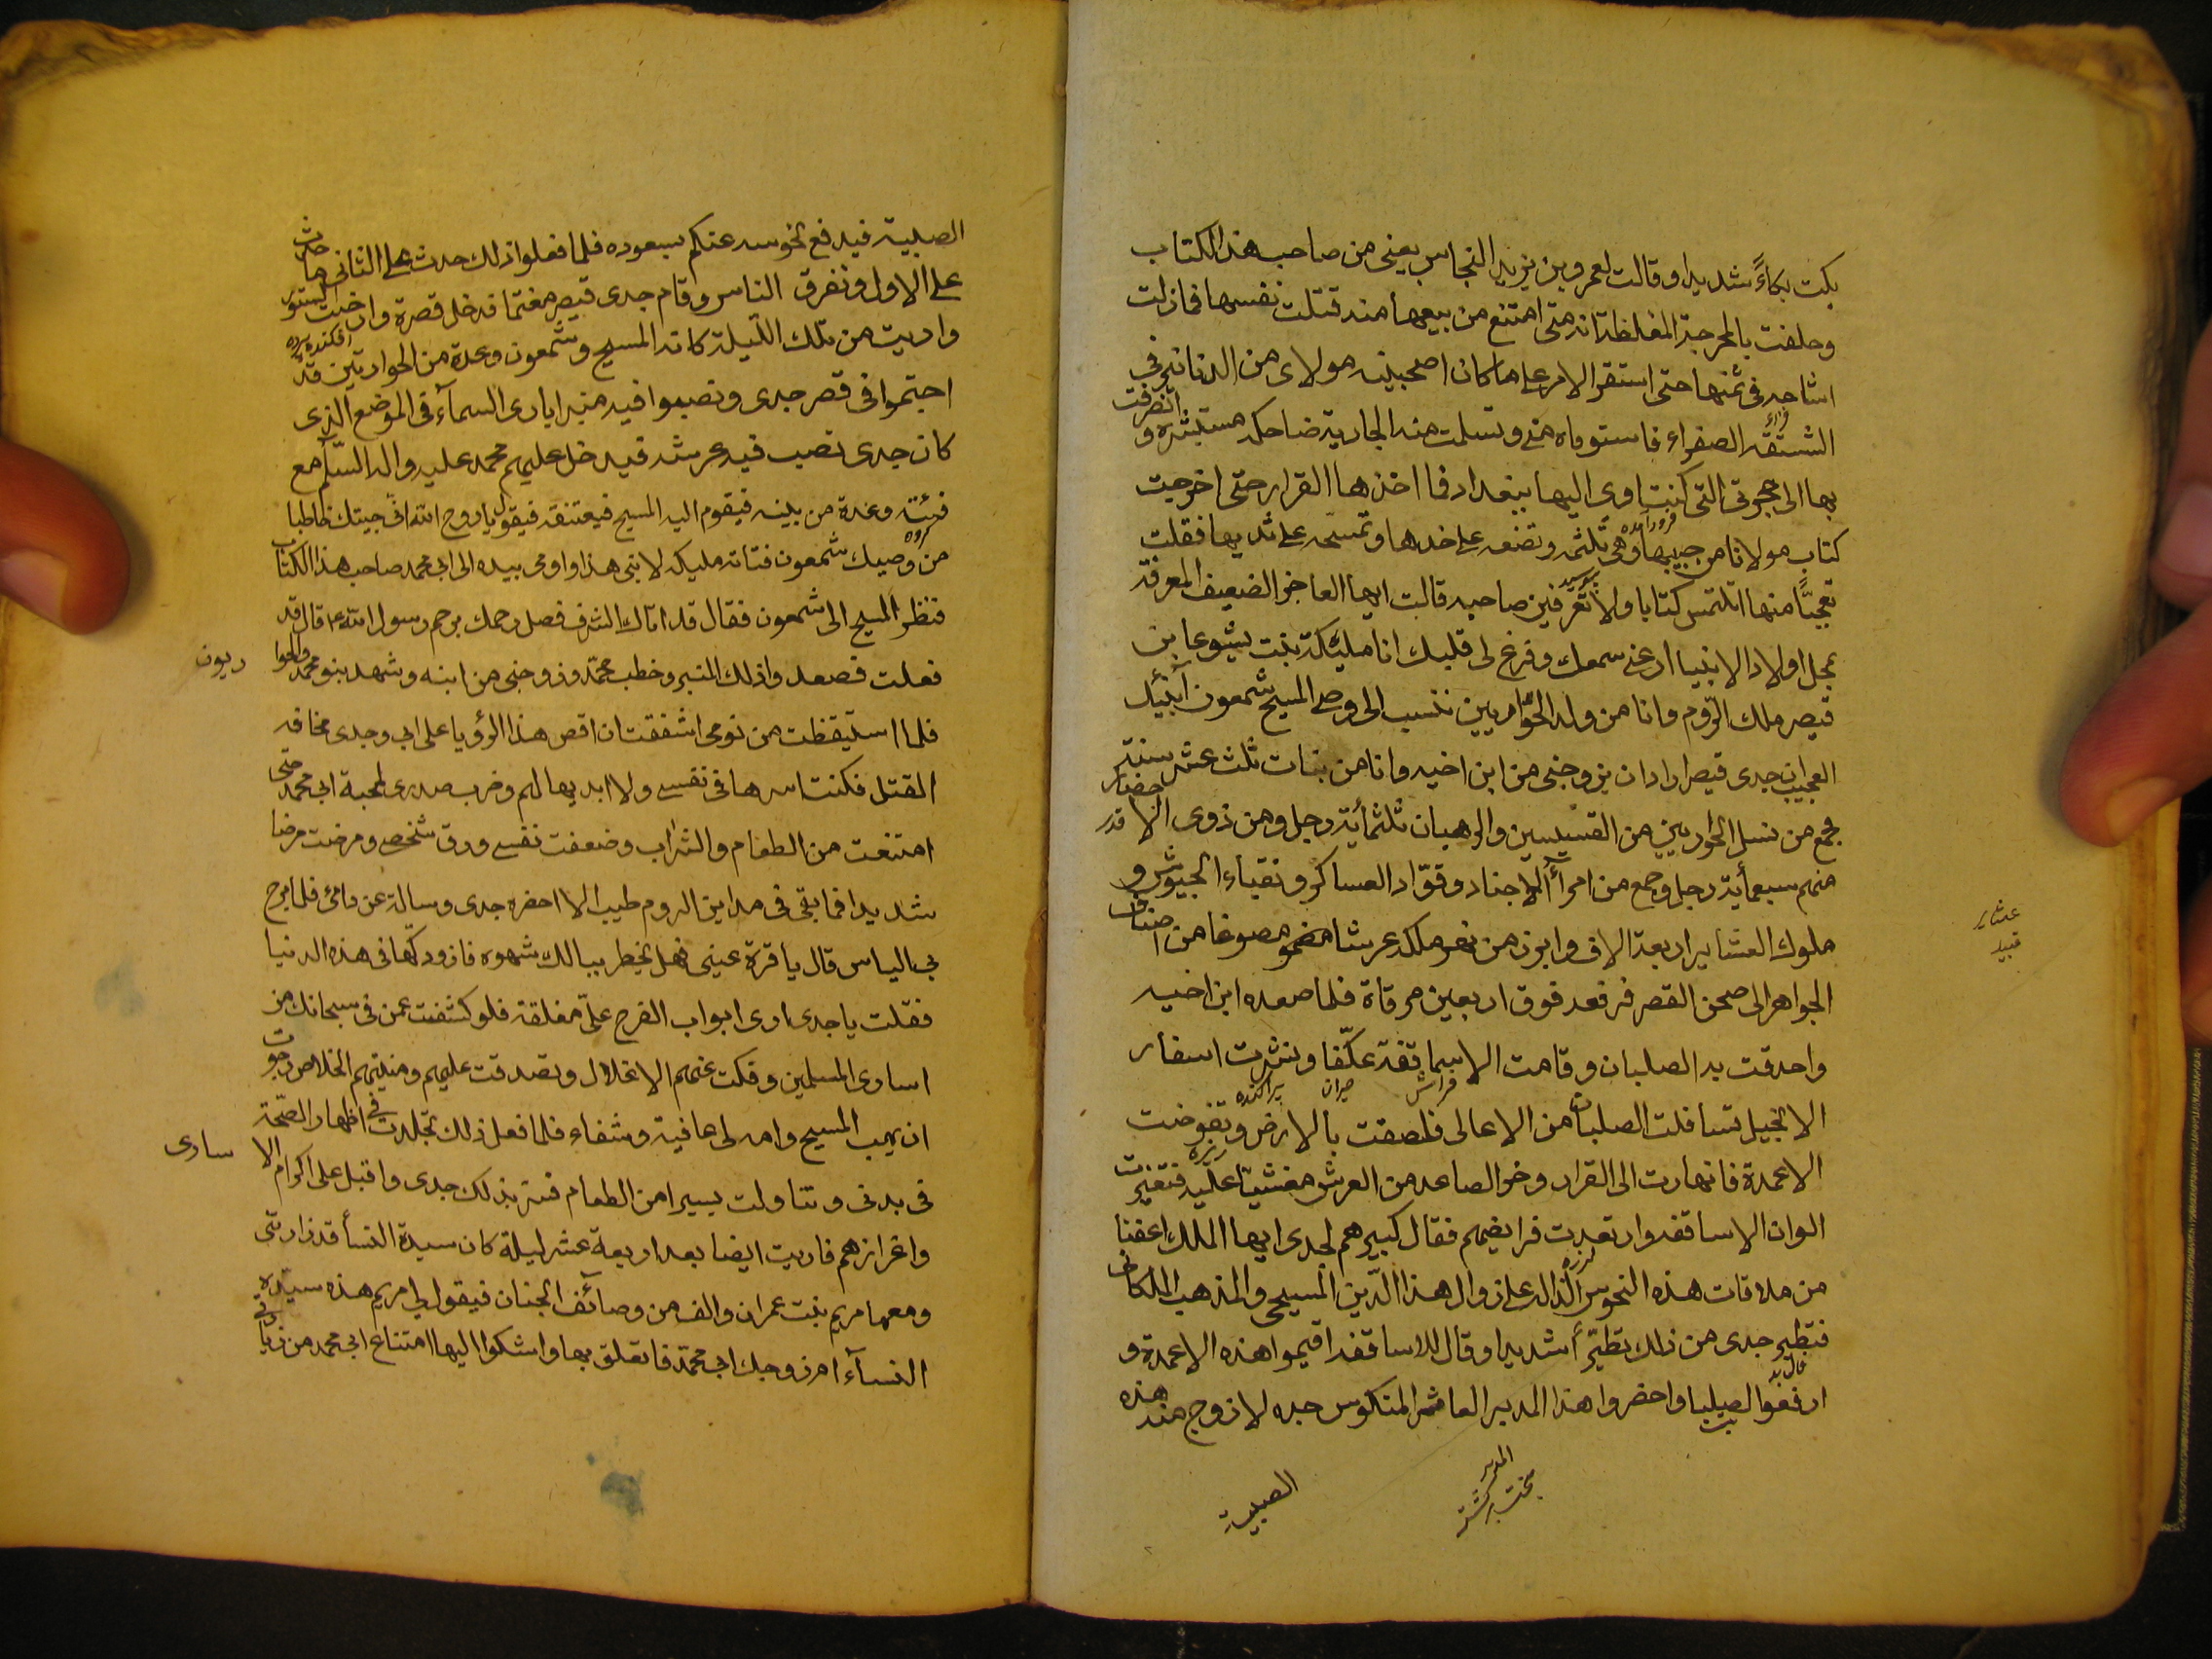 بكت بكاءً شديدا وقالت لعمرو بن يزيد النخاس بعنى من صاحب هذا الكتاب
وحلفت بالمحرجة المغلظة انه متى امتنع من بيعها منه قتلت نفسها فمازلت
اشاحه فى ثمنها حتى استقر الامر على ما كان اصحبنيه مولاى من الدنانير فى
الشستقه الصفراء فاستوفاه منى وتسلمت منه الجارية ضاحكه مستبشرة و انصرفت
بها الى حجرتى التى كنت اوى اليها ببغداد فما اخذها القرار حتى اخرجت
كتاب مولانا من جيبها وهى تلثمه وتضعه على خدها وتمسحه على ثديها فقلت
تعجبًا منها اتلثمين كتابا ولا تعرفين صاحبه قالت ايها العاجز الضعيف المعرفة
بمحل اولاد الانبيا ارعنى سمعك وفرغ لى قلبك انا مليكة بنت يشوعا بن
قيصر ملك الرّوم وانا من ولد الحواريين ننسب الى وصى المسيح شمعون أنبئك
العجيب ان جدى قيصر اراد ان يزوجنى من ابن اخيه وانا من بنات ثلث عشر سنة
فجمع من نسل الحواريين من القسيسين والرهبان ثلثمأية رجل ومن ذوى الاخطار
منهم سبعمأية رجل وجمع من امراء الاجناد وقوّاد العساكر ونقباء الجيوش و
ملوك العشاير اربعة الاف وابرز من بهو ملكه عرشا مصوغا من اصناف
الجواهر الى صحن القصر فرفعه فوق اربعين مرقاة فلما صعد ابن اخيه
واحدقت به الصلبان وقامت الاساقفة عكّفا ونشرت اسفار
الانجيل تسافلت الصلبان من الاعالى فلصقت بالارض وتقوضت
الاعمدة فانهارت الى القرار وخر الصاعد من العرش مغشيّا عليه فتغيرت
الوان الاساقفه وارتعدت فرايضهم فقال كبيرهم لجدى ايها الملك اعفنا
من ملاقات هذه النحوس الدالة على زوال هذا الدّين المسيحى والمذهب الملكانى
فتطير جدى من ذلك تطيّرأ شديدا وقال للاساقفه اقيموا هذه الاعمدة و
ارفعوا الصلبان واحضروا هذا المدبر العاثر المنكوس جده لازوج منه هذه
عشاير
قبيله
المدبر
بخت برگشته
الصبية
الصبية فيدفع نحوسه عنكم بسعوده فلما فعلوا ذلك حدث على الثانى ما حدث
على الاول وتفرق الناس وقام جدى قيصر مغتما فدخل قصرة وارخيت الستور
واريت من تلك اللّيلة كان المسيح وشمعون وعدة من الحواريّين قد
اجتمعوا فى قصر جدى ونصبوا فيه منبرا يبارى السمآء فى الموضع الذى
كان جدى نصب فيه عرشه فيدخل عليهم محمد عليه واله السّلآم مع
فتية وعدة من بنيه فيقوم اليه المسيح فيعتنقه فيقول يا روح الله انى جيتك خاطبا
من وصيك شمعون فتاته مليكه لابنى هذا واومى بيده الى ابى محمد صاحب هذا الكتاب
فنظر المسيح الى شمعون فقال قد اتاك الشرف فصل رحمك برحم رسول الله ص قال قد
فعلت فصعد ذلك المنبر وخطب محمّد وزوجنى من ابنه وشهد بنو محمد والحوا
ريون
فلما استيقظت من نومى اشفقت ان اقص هذا الرؤيا على ابى وجدى مخافه
القتل فكنت اسرها فى نفسى ولا ابديها لهم وضرب صدرى لمحبة ابى محمد حتى
امتنعت من الطعام والشراب وضعفت نفسى ودق شخصى ومرضت مرضا
شديدا فما بقى فى مداين الروم طبيب الا احضره جدى وساله عن دائى فلما برح
بى الياس قال يا قرة عينى فهل يخطر ببالك شهوه فازودكها فى هذه الدنيا
فقلت يا جدى ارى ابواب الفرج علىّ مغلقة فلو كشفت عمن فى سجنك من
اسارى المسلمين وفككت عنهم الاغلال وتصدقت عليهم ومنيتهم الخلاص رجوت
ان يهب المسيح وامه لى عافية وشفاء فلما فعل ذلك تجلدت فى اظهار الصّحة
فى بدنى وتناولت يسيرا من الطعام فسر بذلك جدى واقبل على اكرام الا
سارى
واعزازهم فاريت ايضا بعد اربعة عشر ليلة كان سيدة النسأ قد زارتنى
ومعها مريم بنت عمران والف من وصائف الجنان فيقول لى مريم هذه سيّدة
النسآء ام زوجك ابى محمّد فاتعلق بها واشكوا اليها امتناع ابى محمد من زيارتى